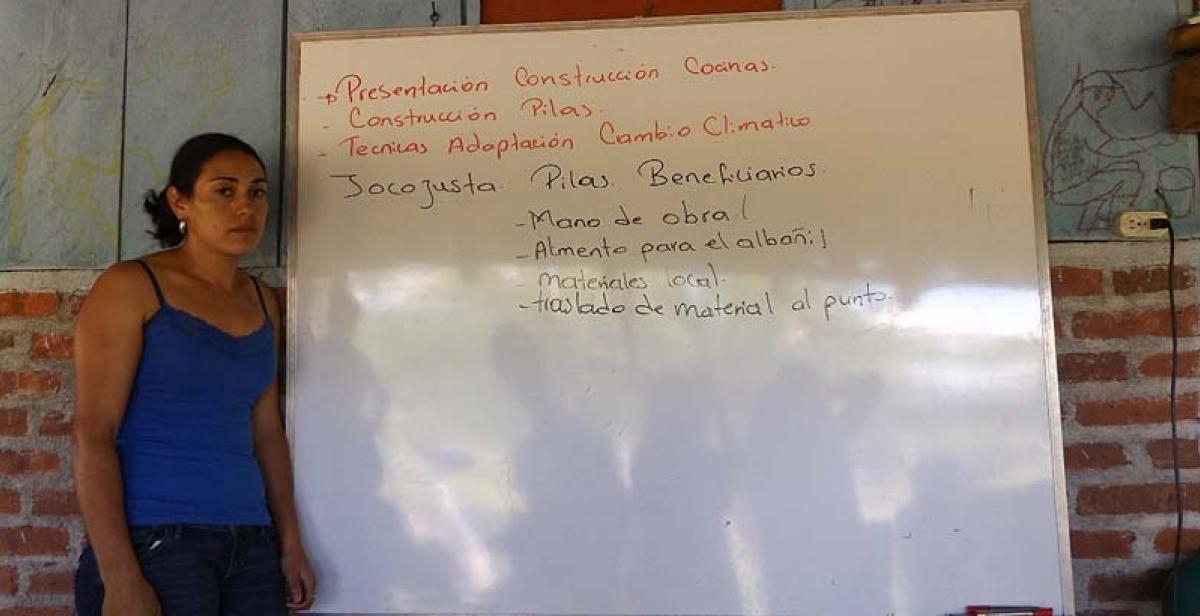 → Presentación Construcción Cocinas.
- Construcción Pilas.
- Tecnicas Adaptación Cambio Climatico
Jocozusta. Pilas. Beneficiarios.
- Mano de obra (
- Almento para el albañil
- materiales local.
- traslado de material al punto.